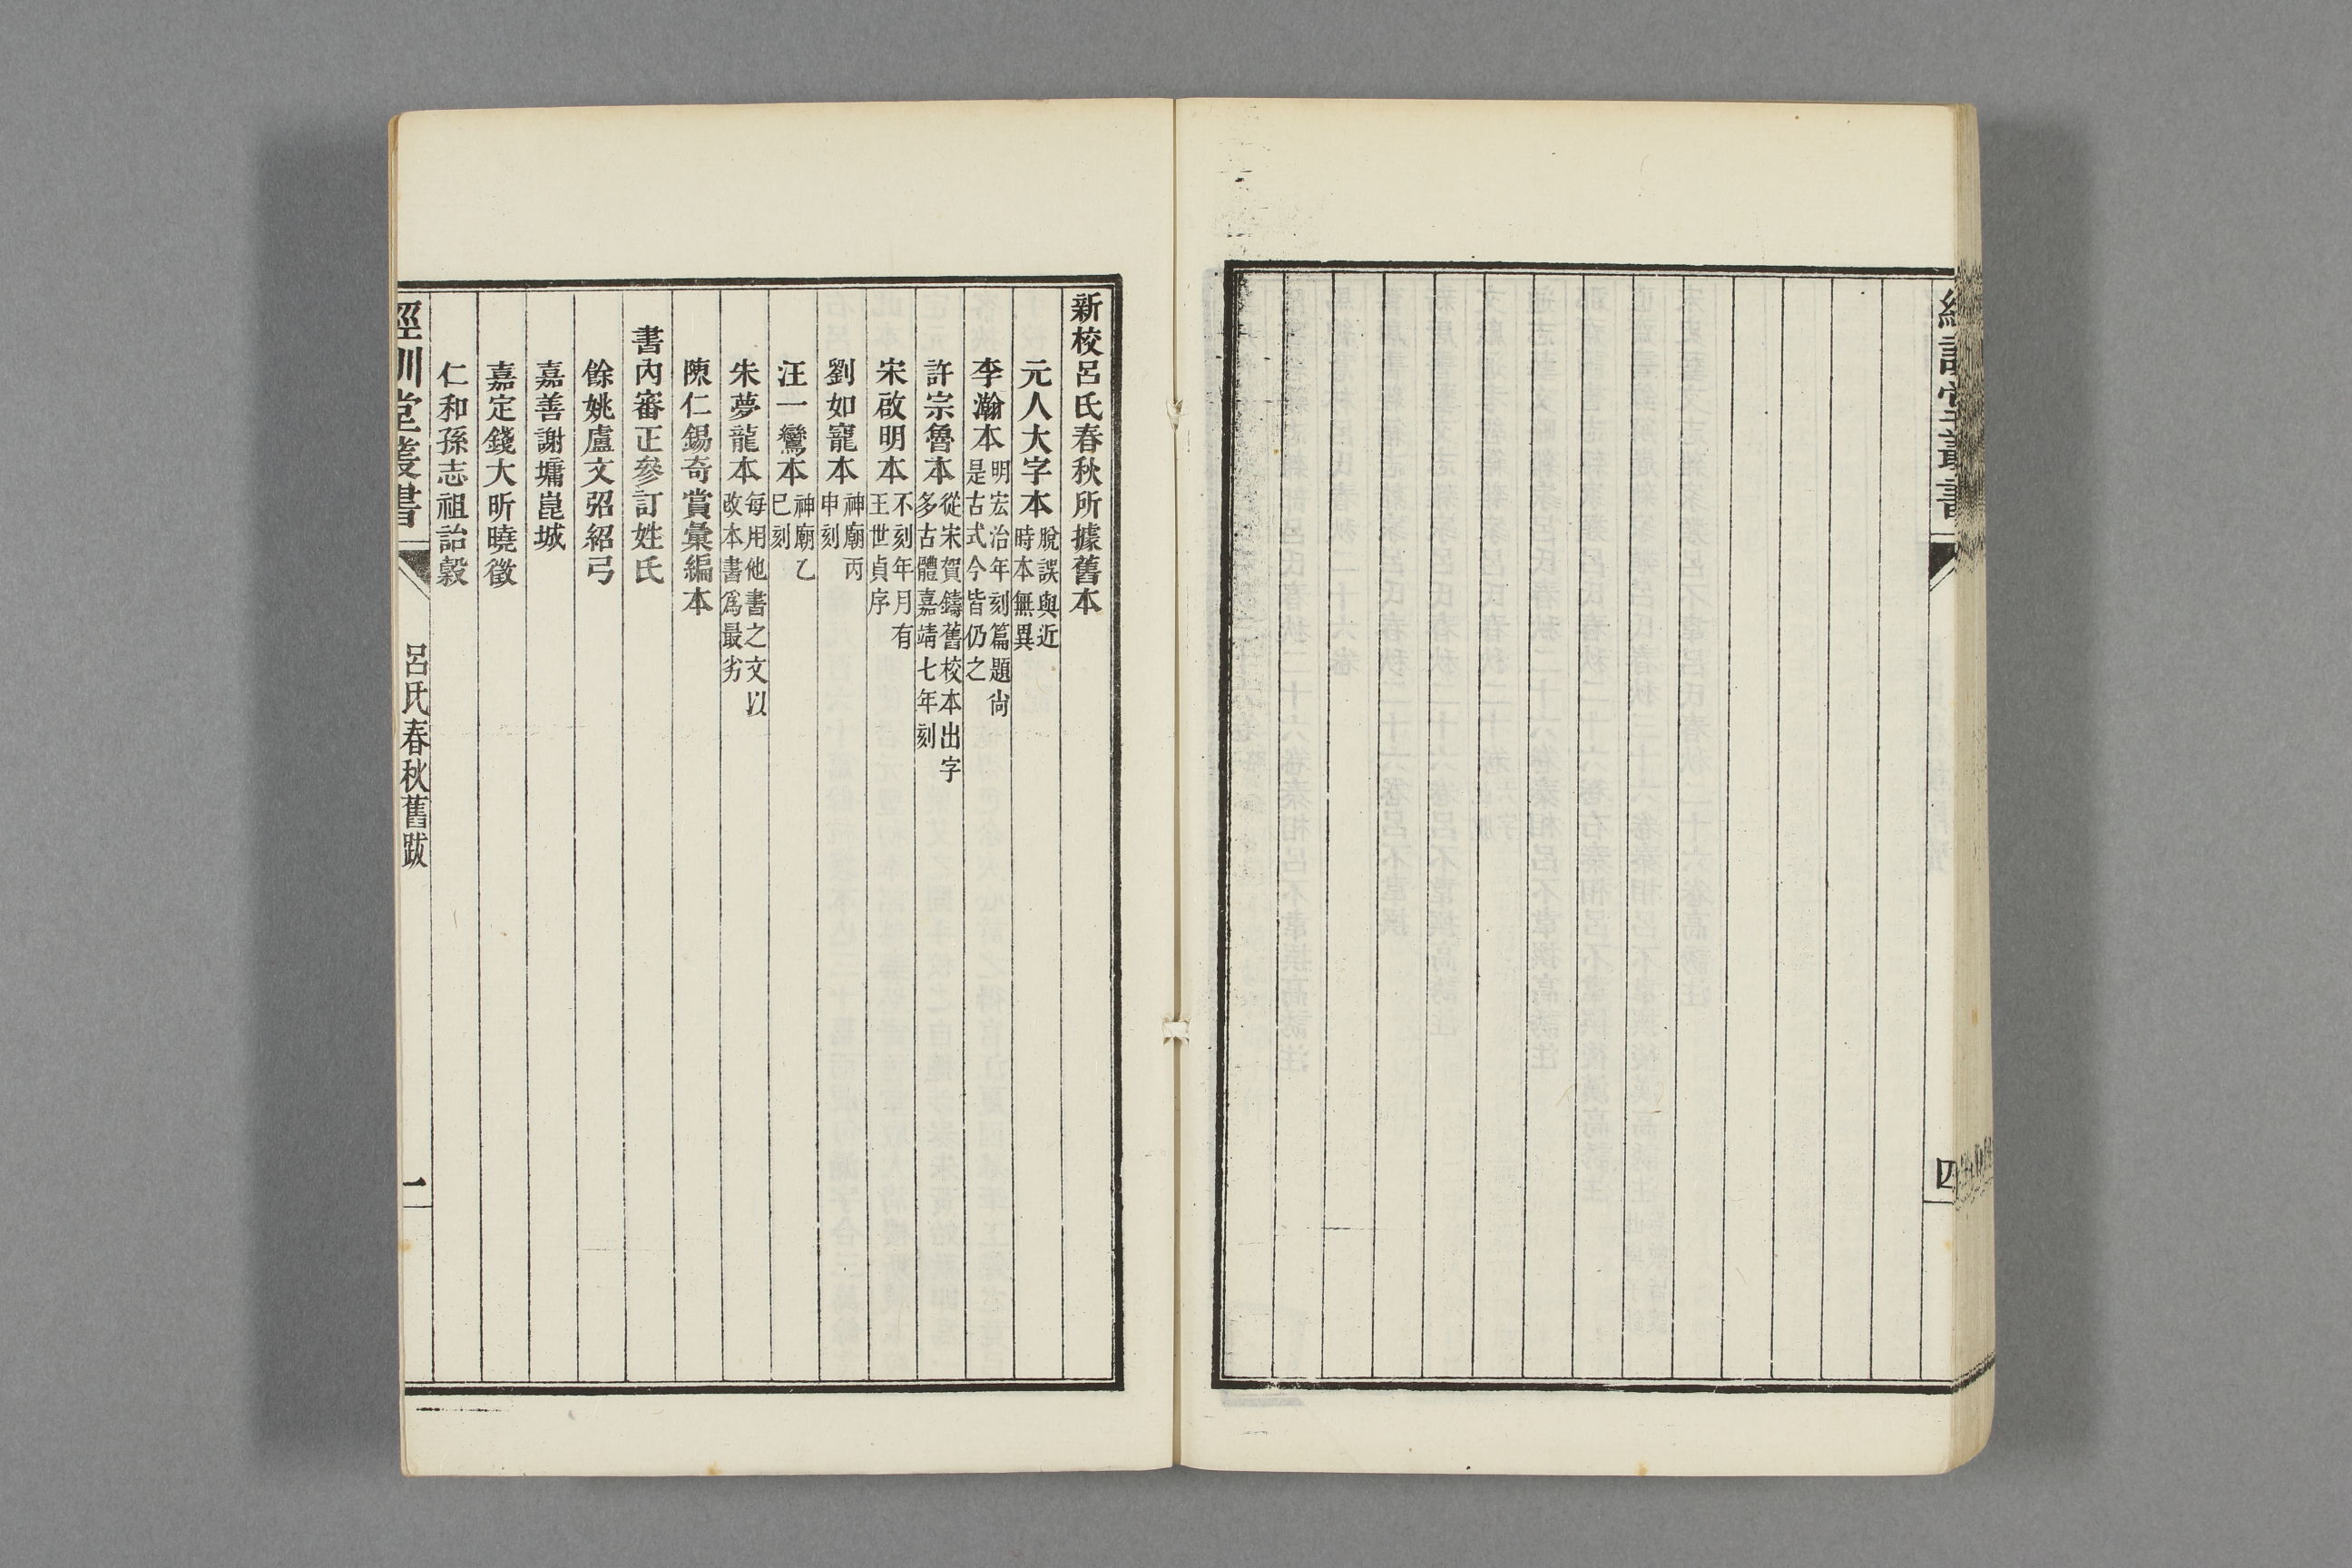 四
新校呂氏春秋所據舊本
元人大字本 脫誤與近時本無異
李瀚本 明宏治年刻篇題尙是古式今皆仍之
許宗魯本 從宋賀鑄舊校本出字多古體嘉靖七年刻
宋啟明本 不刻年月有王世貞序
劉如寵本 神廟丙申刻
汪一鸞本 神廟乙巳刻
朱夢龍本 每用他書之文以改本書爲最劣
陳仁錫奇賞彙編本
書內審正參訂姓氏
餘姚盧文弨紹弓
嘉善謝墉崑城
嘉定錢大昕曉徵
仁和孫志祖詒穀
經訓堂叢書
呂氏春秋舊跋
一